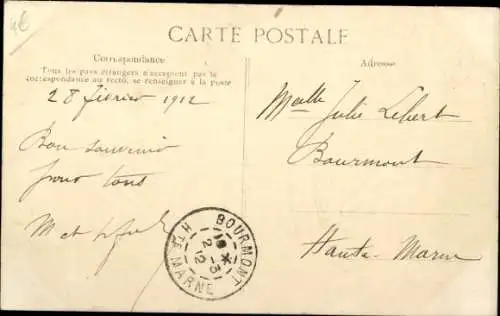 CARTE POSTALE
Correspondance
Tous les pays étrangers n'acceptent pas la
correspondance au recto, se renseigner à la poste
Adresse
28 février 1912
Bon souvenir
pour tous
M et
Melle Julie Lebert
Bourmont
Haute-Marne
BOURMONT
2 -3
12
HTE MARNE